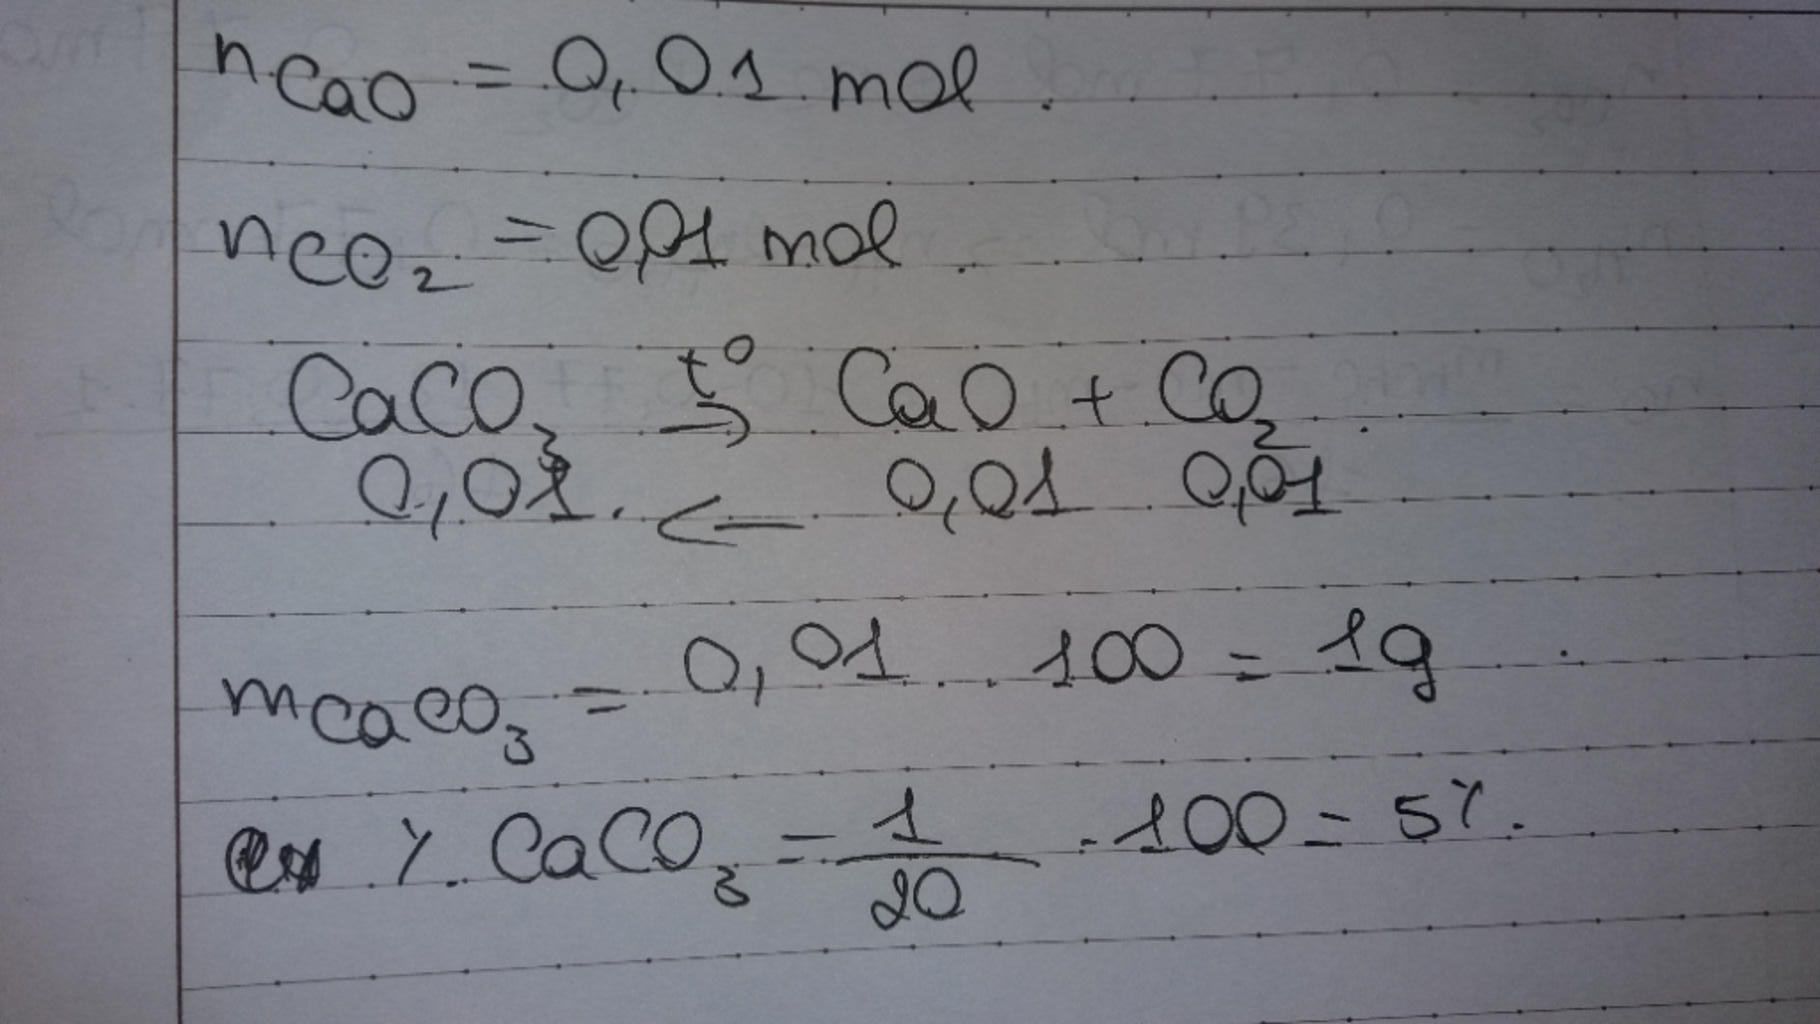 nCaO = 0,01 mol.
nCO₂ = 0,01 mol.
CaCO₃ t⁰→ CaO + CO₂.
0,01. ← 0,01 0,01
mCaCO₃ = 0,01 . 100 = 1g
% CaCO₃ = 1/20 . 100 = 5%.